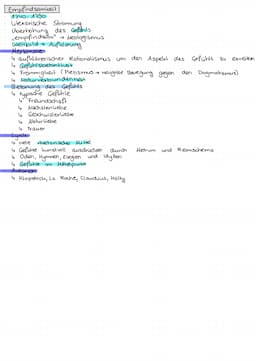 Empfindsamkeit
1740 - 1780
Literarische Strömung
Überhöhung des Gefühls
„empfindsam" → Neologismus
Merkmale
↳ aufklärerischer Rationalismus um den Aspekt des Gefühls zu erweitern
↳ Frömmigkeit (Pietismus → religiöse Bewegung gegen den Dogmatismus)
↳ Naturverbundenheit
Betonung des Gefühls
↳ typische Gefühle
↳ Freundschaft
↳ Nächstenliebe
↳ Geschwisterliebe
↳ Naturliebe
↳ Trauer
Lyrik
↳ viele rhetorische Mittel
↳ Gefühle kunstvoll ausdrücken durch Metrum und Reimschema
↳ Oden, Hymnen, Elegien und Idyllen
↳ Gefühle im Mittelpunkt
Autoren
↳ Klopstock, La Roche, Claudius, Hölty